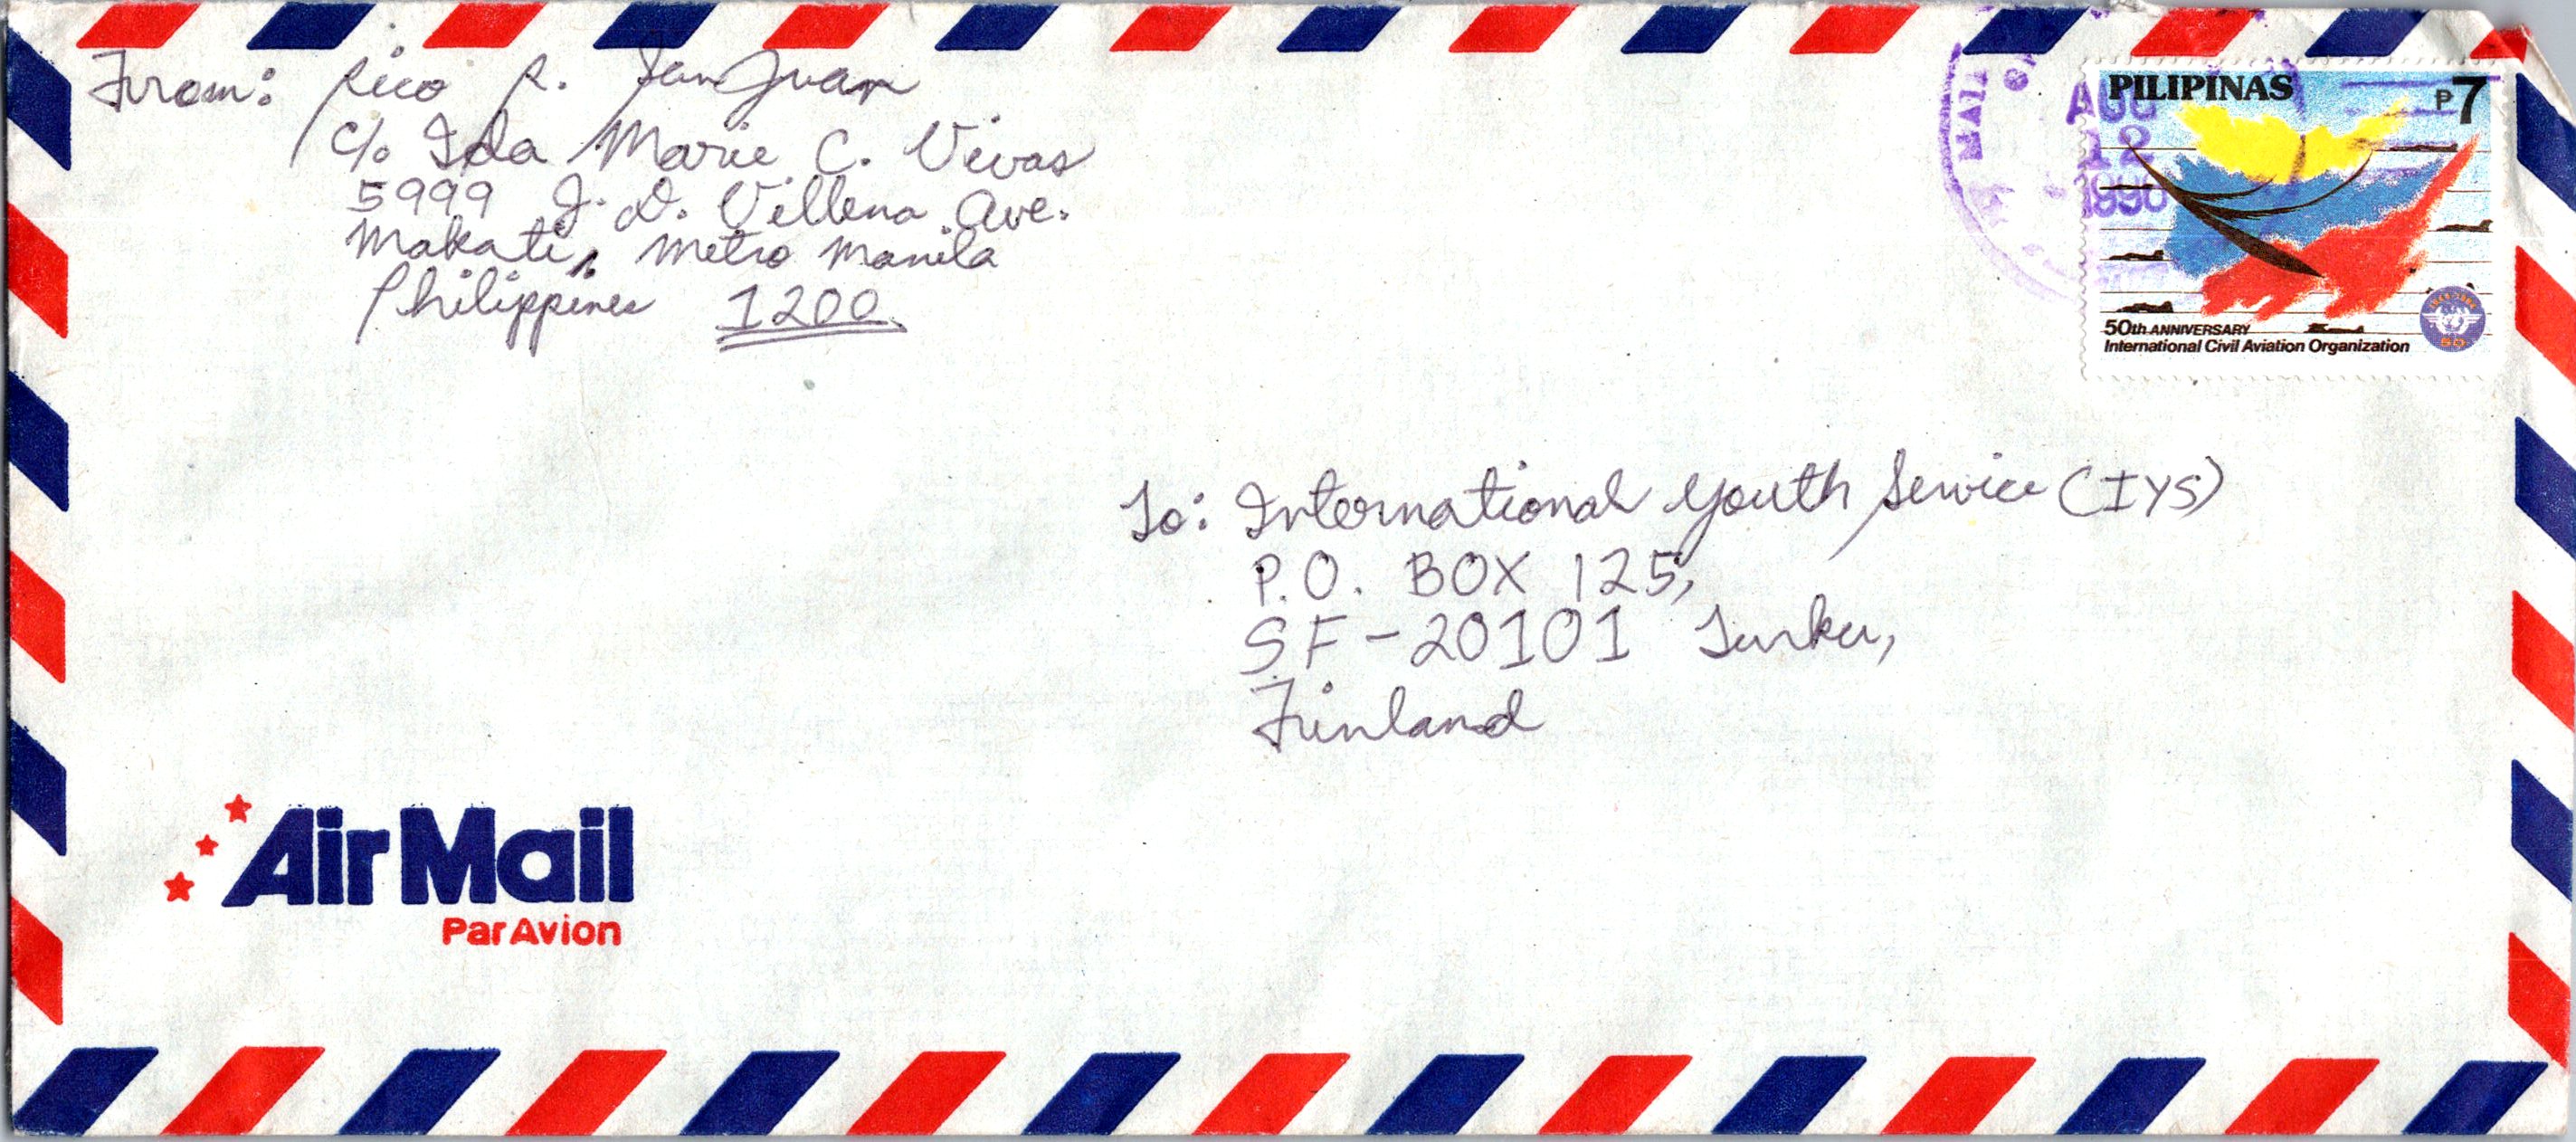 From: Rico R. San Juan
c/o Ida Marie C. Vivas
5999 J. D. Villena Ave.
Makati, Metro Manila
Philippines 1200
MAIL
AUG
12
PILIPINAS
₱7
50th ANNIVERSARY
International Civil Aviation Organization
To: International Youth Service (IYS)
P.O. BOX 125,
SF-20101 Turku,
Finland
Air Mail
Par Avion